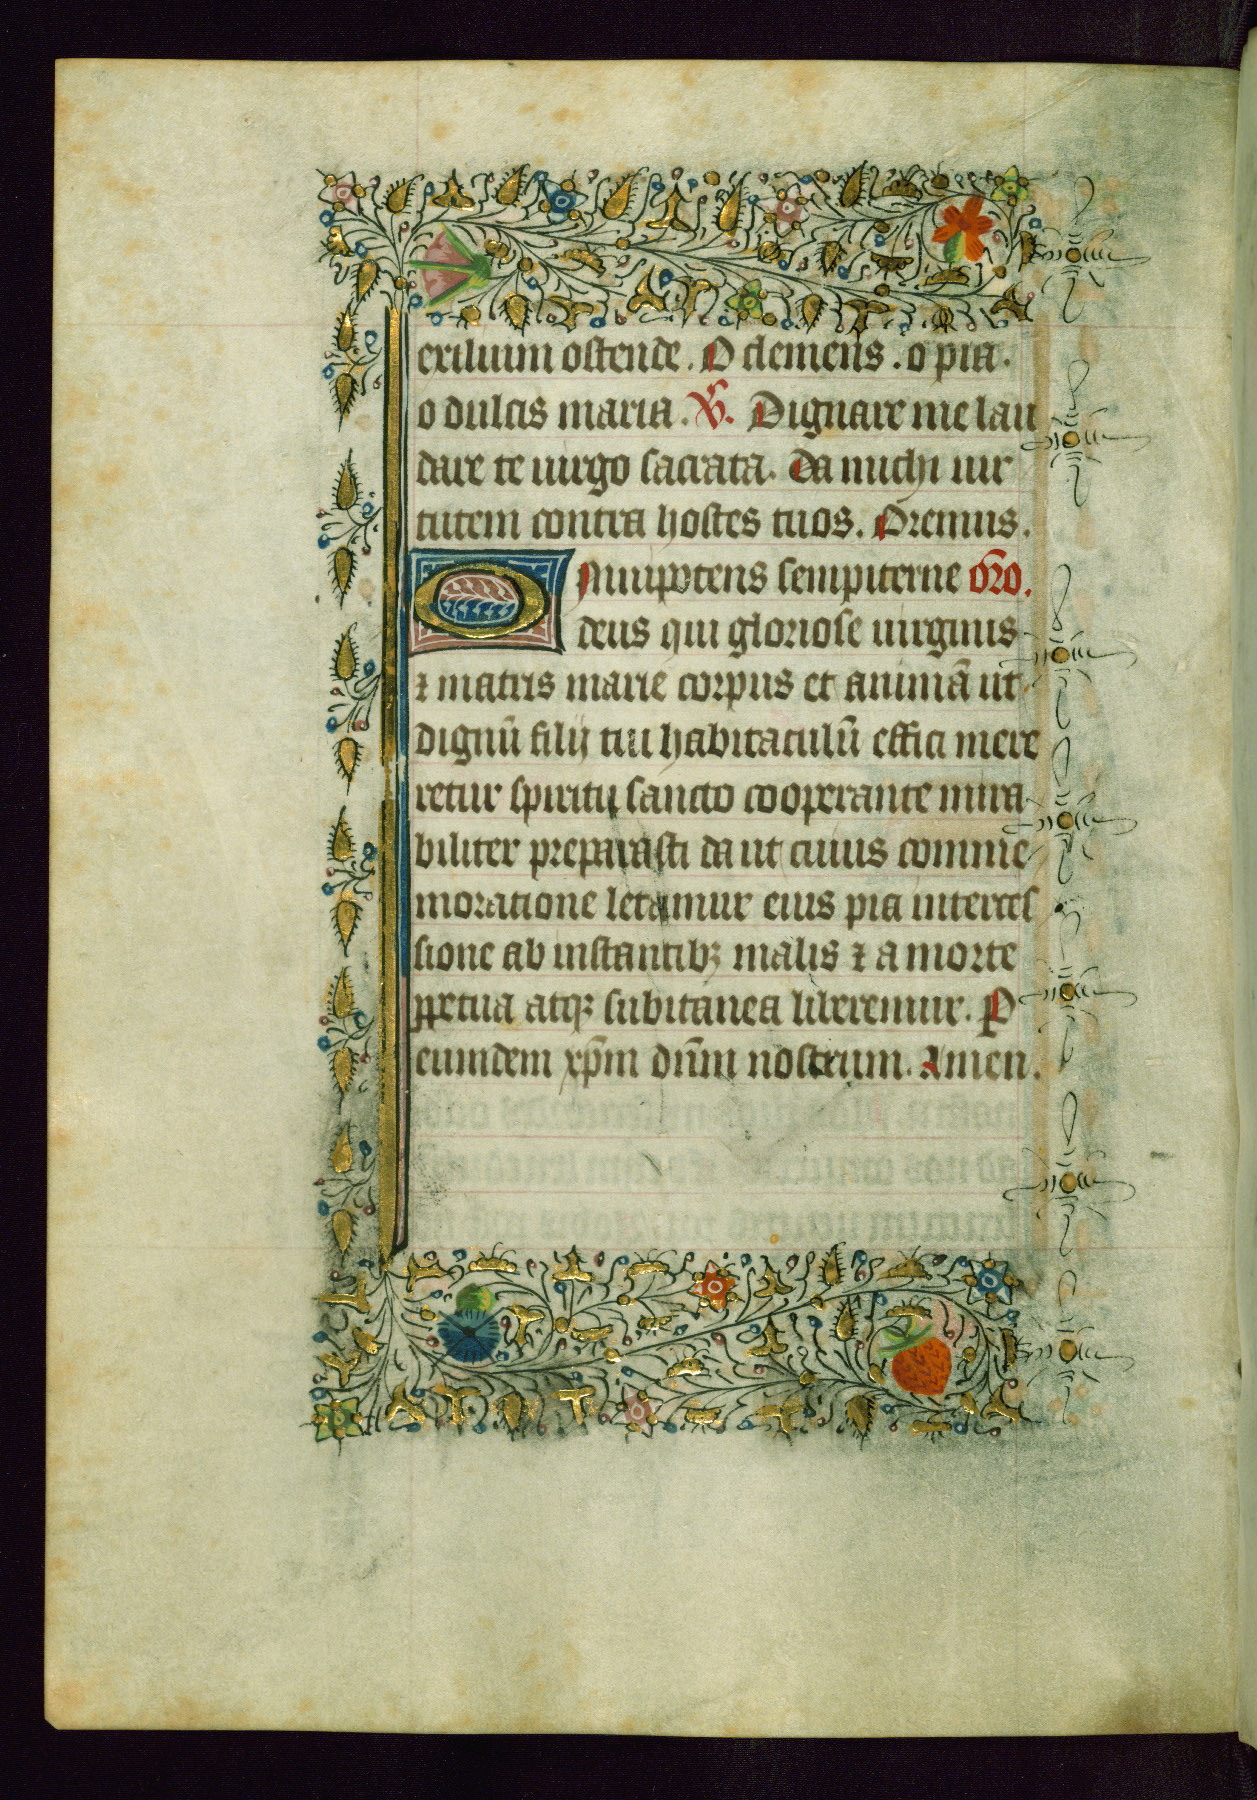 exilium ostende. O clemens. o pia.
o dulcis maria. V̄. Dignare me lau
dare te uirgo sacrata. Da michi uir
tutem contra hostes tuos. Oremus.
Omnipotens sempiterne oro.
deus qui gloriose uirginis
⁊ matris marie corpus et animā ut
dignū filij tui habitaculū effici mere
retur spiritu sancto cooperante mira
biliter preparasti da ut cuius comme
moratione letamur eius pia interces
sione ab instantibꝫ malis ⁊ a morte
ꝑpetua atqꝫ subitanea liberemur. P
eumdem xp̄m dn̄m nostrum. Amen.